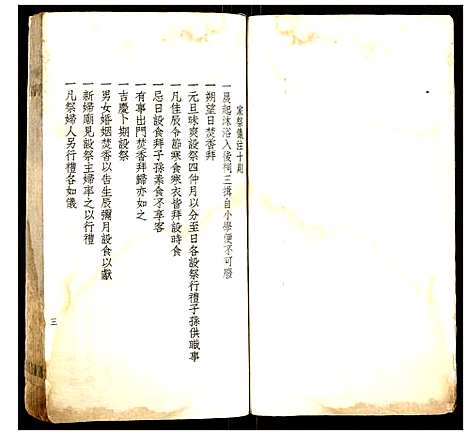 家祭儀注十則
一晨起沐浴入後祠三揖自小學便不可廢
一朔望日焚香拜
一元旦昧爽設祭四仲月以分至日各設祭行禮子孫供職事
一凡佳辰令節寒食寒衣皆拜設時食
一忌日設食拜子孫素食不享客
一有事出門焚香拜歸亦如之
一吉慶卜期設祭
一男女婚姻焚香以告生辰彌月設食以獻
一新婦廟見設祭主婦率之以行禮
一凡祭婦人另行禮各如儀
三